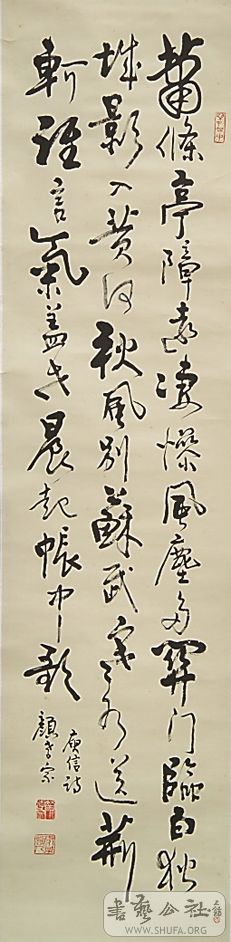 蕭條亭障遠凄慘風塵多關门臨白狄
城影入黄河秋風別蘇武寒水送荊
軻誰言氣蓋世晨起帳中歌
庾信詩
顏 宗
書藝公社
WWW.SHUFA.ORG